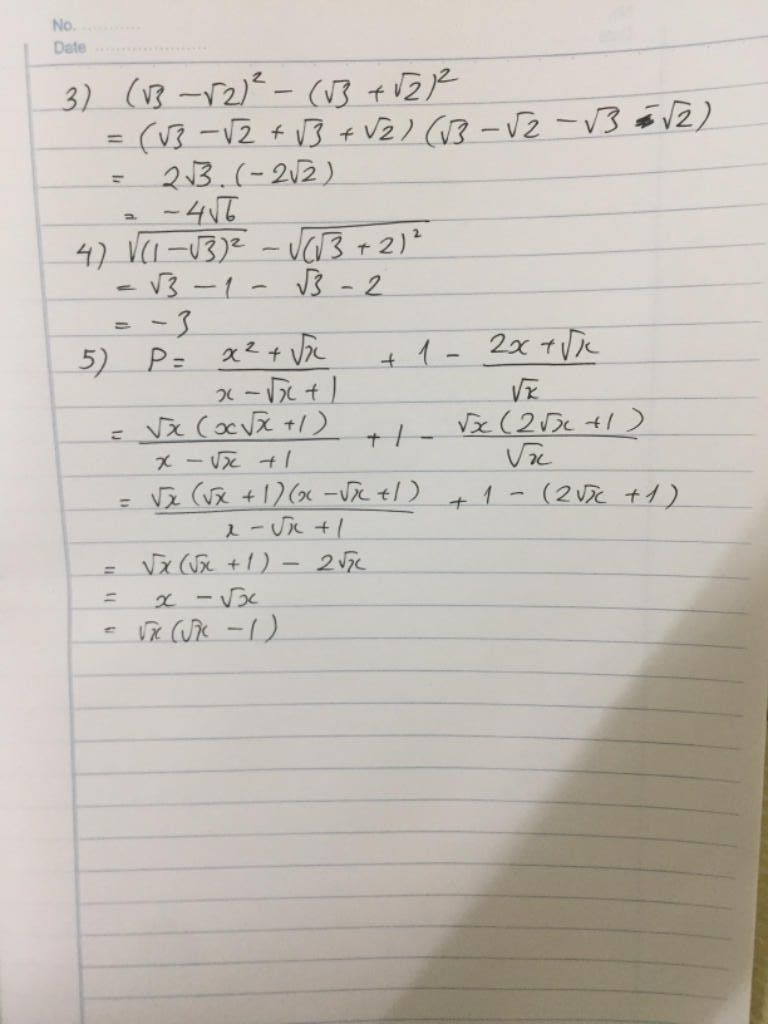 No. ............
Date ......................
3) (√3 - √2)² - (√3 + √2)²
= (√3 - √2 + √3 + √2) (√3 - √2 - √3 - √2)
= 2√3 . (-2√2)
= -4√6
4) √(1-√3)² - √(√3 + 2)²
= √3 - 1 - √3 - 2
= -3
5) P = (x² + √x)/(x - √x + 1) + 1 - (2x + √x)/√x
= √x (x√x + 1)/(x - √x + 1) + 1 - √x (2√x + 1)/√x
= √x (√x + 1)(x - √x + 1)/(x - √x + 1) + 1 - (2√x + 1)
= √x (√x + 1) - 2√x
= x - √x
= √x (√x - 1)